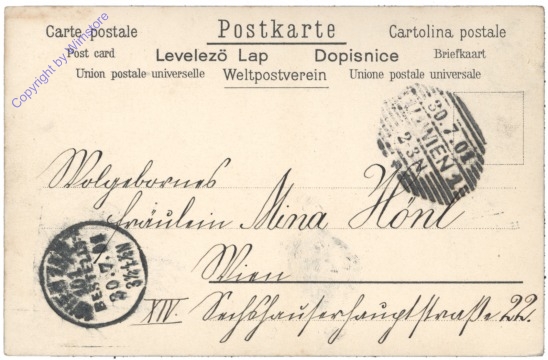 Carte postale Postkarte Cartolina postale
Post card Levelező Lap Dopisnice Briefkaart
Union postale universelle Weltpostverein Unione postale universale
Copyright by Winstore
30.7.01
WIEN 1
2-3N
Wolgebornes
Fräulein Mina Hönl
Wien
XIV. Sechshauserhauptstraße 22.
BESTELLT
30.7.01